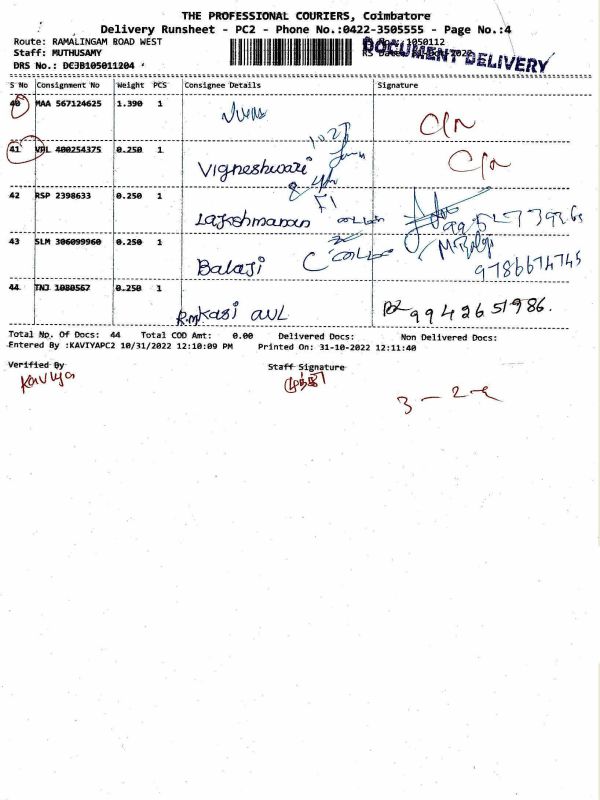 THE PROFESSIONAL COURIERS, Coimbatore
Delivery Runsheet - PC2 - Phone No.:0422-3505555 - Page No.:4
Route: RAMALINGAM ROAD WEST 1050112
Staff: MUTHUSAMY
DOCUMENT DELIVERY
DRS No.: DC3B105011204
S No Consignment No Weight PCS Consignee Details Signature
40 MAA 567124625 1.390 1
41 VPL 400254375 0.250 1 Vigneshwari
42 RSP 2398633 0.250 1 Lakshmanan
43 SLM 306099960 0.250 1 Balaji 9786674745
44 TNJ 1080567 0.250 1 R.m Kasi AVL 9942651986.
Total No. Of Docs: 44 Total COD Amt: 0.00 Delivered Docs: Non Delivered Docs:
Entered By :KAVIYAPC2 10/31/2022 12:10:09 PM Printed On: 31-10-2022 12:11:40
Verified By Staff Signature
Kaviya